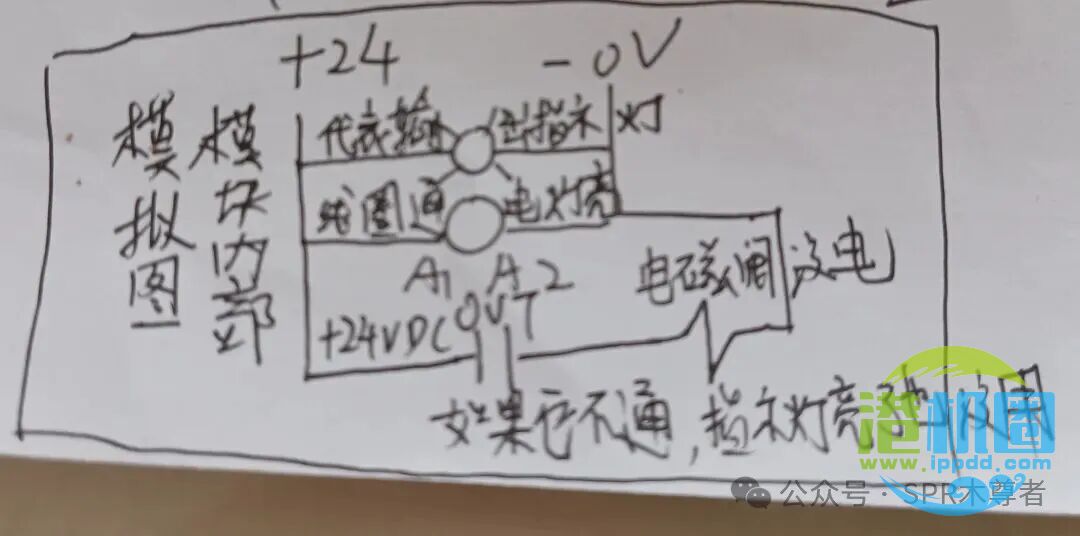 +24 -0V
模拟图
模块内部
代表输出指示灯
线圈通电灯亮
A1 A2
+24VDC OUT
电磁阀没电
如果它不通,指示灯亮 没用
港机圈
www.ippdd.com
公众号 · SPR木尊者